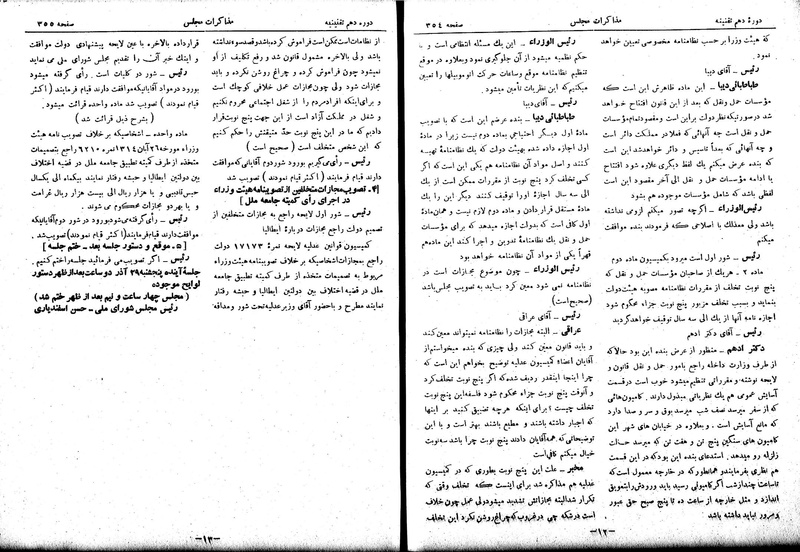 دوره دهم تقنینیه
مذاکرات مجلس
صفحه ۳۵۴
که هیئت وزراء بر حسب نظامنامه مخصوصی تعیین خواهد
نمود.
رئیس ـ آقای دیبا
طباطبائی دیبا ـ این ماده ظاهرش این است که
مؤسسات حمل و نقل که بعد از این قانون افتتاح خواهد
شد در صورتیکه نظر دولت بر این است و مقصود تمام مؤسسات
حمل و نقل است چه آنهائی که فعلا در مملکت دائر است
و چه آنهائی که بعداً تأسیس و دائر خواهند شد این است
که بنده عرض میکنم یك لفظ دیگری علاوه شود افتتاح
یا ادامه مؤسسات حمل و نقل الی آخر مقصود این است
لفظی باشد که شامل مؤسسات موجوده هم بشود
رئیس الوزراء ـ اگرچه تصور میکنم لزومی نداشته
باشد ولی معذلك با اصلاحی که فرمودند بنده موافقت
میکنم
رئیس ـ شور اول است میرود بکمیسیون ماده دوم
ماده ۲ ـ هر یك از صاحبان مؤسسات حمل و نقل که
پنج نوبت تخلف از مقررات نظامنامه مصوبه هیئت دولت
بنماید و بسبب تخلف مزبور پنج نوبت جزاء محکوم شود
اجازه نامه آنها از یك الی سه سال توقیف خواهد گردید
رئیس ـ آقای دکتر ادهم
دکتر ادهم ـ منظور از عرض بنده این بود حالا که
از طرف وزارت داخله راجع بامور حمل و نقل قانون و
لایحه نوشته و مقرراتی تنظیم میشود خوب است در قسمت
آسایش عمومی هم یك نظریاتی مبذول دارند. کامیونهائی
که از سفر میرسد نصف شب میرسد بوق و سر و صدا دارد
که مانع آسایش است. و بعلاوه در خیابان های شهر این
کامیون های سنگین پنج تن و هفت تن که میرسد حالت
زلزله رو میدهد. استدعای بنده این بود که در این قسمت
هم نظری بفرمایند و همانطور که در خارجه معمول است که
تا ساعت چند از شب اگر کامیونی رسید باید ورودش را بتعویق
اندازد و مثل خارجه از ساعت ده تا پنج صبح حق عبور
و مرور نباید داشته باشد
رئیس الوزراء ـ این یك مسئله انتظامی است و
حکم نظمیه میشود از آن جلوگیری نمود و بعلاوه در موقع
تنظیم نظامنامه موقع و ساعات حرکت اتوموبیلها را تعیین
میکنیم که این نظریات تأمین میشود.
رئیس ـ آقای دیبا
طباطبائی دیبا ـ بنده عرضم این است که با تصویب
مادۀ اول دیگر احتیاجی بماده دوم نیست زیرا در مادۀ
اول اجازه داده شده بهیئت دولت که یك نظامنامه تهیه
کنند و اصل مواد آن نظامنامه هم یکی این است که اگر
کسی تخلف کرد پنج نوبت از مقررات ممکن است از یك
الی سه سال اجازۀ اورا توقیف کنند دیگر این را یك
مادۀ مستقل قرار دادن و ماده دوم لازم نیست و همان مادۀ
اول کافی است که بدولت اجازه میدهد که برای مؤسسات
حمل و نقل یك نظامنامۀ تدوین و اجرا کنند این ماده هم
قهراً یکی از مواد آن نظامنامه خواهد بود
رئیس الوزراء ـ چون موضوع مجازات است در
نظامنامه نمی شود معین کرد بـاید به تصویب مجلس باشد
(صحیح است)
رئیس ـ آقای عراقی
عراقی ـ البته مجازات را نظامنامه نمیتواند معین کند
و باید قانون معین کند ولی چیزی که بنده میخواستم از
آقایان اعضاء کمیسیون عدلیه توضیح بخواهم این است که
چرا اینجا اینقدر ردیف شده که اگر پنج نوبت تخلف کرد
و آنوقت پنج نوبت جزاء محکوم شود فلسفه این پنج نوبت
تخلف چیست؟ برای اینکه هرچه تضییق کنید بر اینها
که اجبار داشته باشند و مطیع باشند بهتر است و با این
توضیحاتی که همه آقایان دادند پنج نوبت چرا باشد سه نوبت
خیال میکنم کافی است
مخبر ـ علت این پنج نوبت بطوری که در کمیسیون
عدلیه هم مذاکره شد برای اینست که تخلف وقتی که
تکرار شد البته مجازاتش تشدید میشود ولی عمل چون خلاف
است که چراغ روشن نکرد این تخلف
ـ ۱۲ ـ
دوره دهم تقنینیه
مذاکرات مجلس
صفحه ۳۵۵
از نظامات است ممکن است فراموش کرده باشد و قصد سوء نداشته
باشد ولی بالاخره مشمول قانون شد و رفع تکلیف از او
نمیشود چون فراموش کرده و چراغ روشن نکرده و باید
مجازات شود ولی چون مجازات عمل خلافی کوچك است
و برای اینکه افراد مردم را از شغل اجتماعی محروم نکنیم
و شغل در مملکت آزاد است از این جهت پنج نوبت قرار
دادیم که ما در این پنج نوبت حد متیقنش را حکم کنیم
که این شخص متخلف است (صحیح است)
رئیس ـ رأی می‌گیریم بورود شور دوم آقایانی که موافقت
دارند قیام فرمایند (اکثر قیام نمودند) تصویب شد
[۴ـ تصویب مجازات متخلفین از تصویبنامه هیئت وزراء
در اجرای رأی کمیته جامعه ملل]
رئیس ـ شور اول لایحه راجع به مجازات متخلفین از
تصمیم دولت راجع بمجازات دربارۀ ایطالیا
کمیسیون قوانین عدلیه لایحه نمرۀ ۱۷۱۷۳ دولت
راجع بمجازات اشخاصیکه بر خلاف تصویبنامه هیئت وزراء
مربوط به تصمیمات متخذه از طرف کمیته تطبیق جامعه
ملل در قضیه اختلاف بین دولتین ایطالیا و حبشه رفتار
نمایند مطرح و با حضور آقای وزیر عدلیه تحت شور و مداقه
قرار داده بالاخره با عین لایحه پیشنهادی دولت موافقت
و اینك خبر آن را تقدیم مجلس شورای ملی می نماید
رئیس ـ شور در کلیات است. رأی گرفته میشود
بورود در مواد آقایانیکه موافقت دارند قیام فرمایند (اکثر
قیام نمودند) تصویب شد ماده واحده قرائت میشود.
(بشرح ذیل قرائت شد)
ماده واحده ـ اشخاصیکه بر خلاف تصویب نامه هیئت
وزراء مورخه ۲۶ آبان ۱۳۱۴ نمره ۶۲۱۰ راجع بتصمیمات
متخذه از طرف کمیته تطبیق جامعه ملل در قضیه اختلاف
بین دولتین ایطالیا و حبشه رفتار نمایند بیکماه الی یکسال
حبس تأدیبی و یا هزار ریال الی بیست هزار ریال غرامت
و یا بهر دو مجازات محکوم می شوند.
رئیس ـ رأی گرفته میشود بورود در شور دوم آقایانیکه
موافقت دارند قیام فرمایند (اکثر قیام نمودند) تصویب شد.
[۵ ـ موقع و دستور جلسه بعد ـ ختم جلسه]
رئیس ـ اگر تصویب می فرمائید جلسه را ختم کنیم.
جلسه آینده پنجشنبه ۲۸ آذر دو ساعت بعد از ظهر دستور
لوایح موجوده
(مجلس چهار ساعت و نیم بعد از ظهر ختم شد)
رئیس مجلس شورای ملی ـ حسن اسفندیاری
ـ ۱۳ ـ